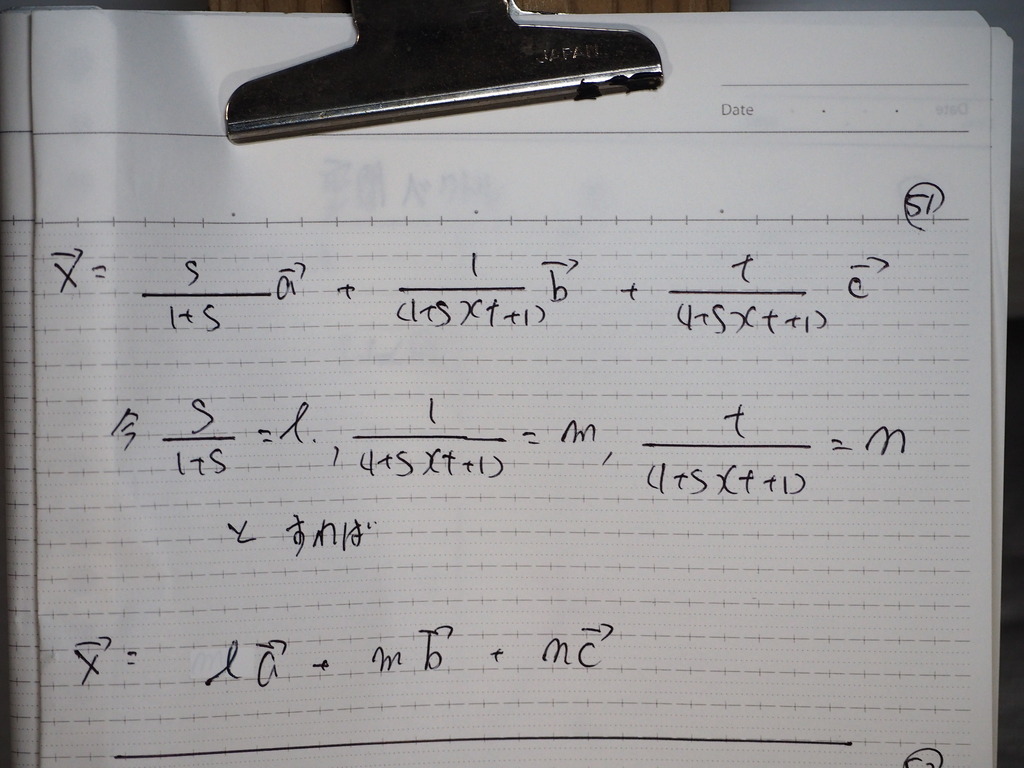 JAPAN
Date
51
x⃗ = s/(1+s) a⃗ + 1/((1+s)(t+1)) b⃗ + t/((1+s)(t+1)) c⃗
今 s/(1+s) = l, 1/((1+s)(t+1)) = m, t/((1+s)(t+1)) = n
とすれば
x⃗ = l a⃗ + m b⃗ + n c⃗